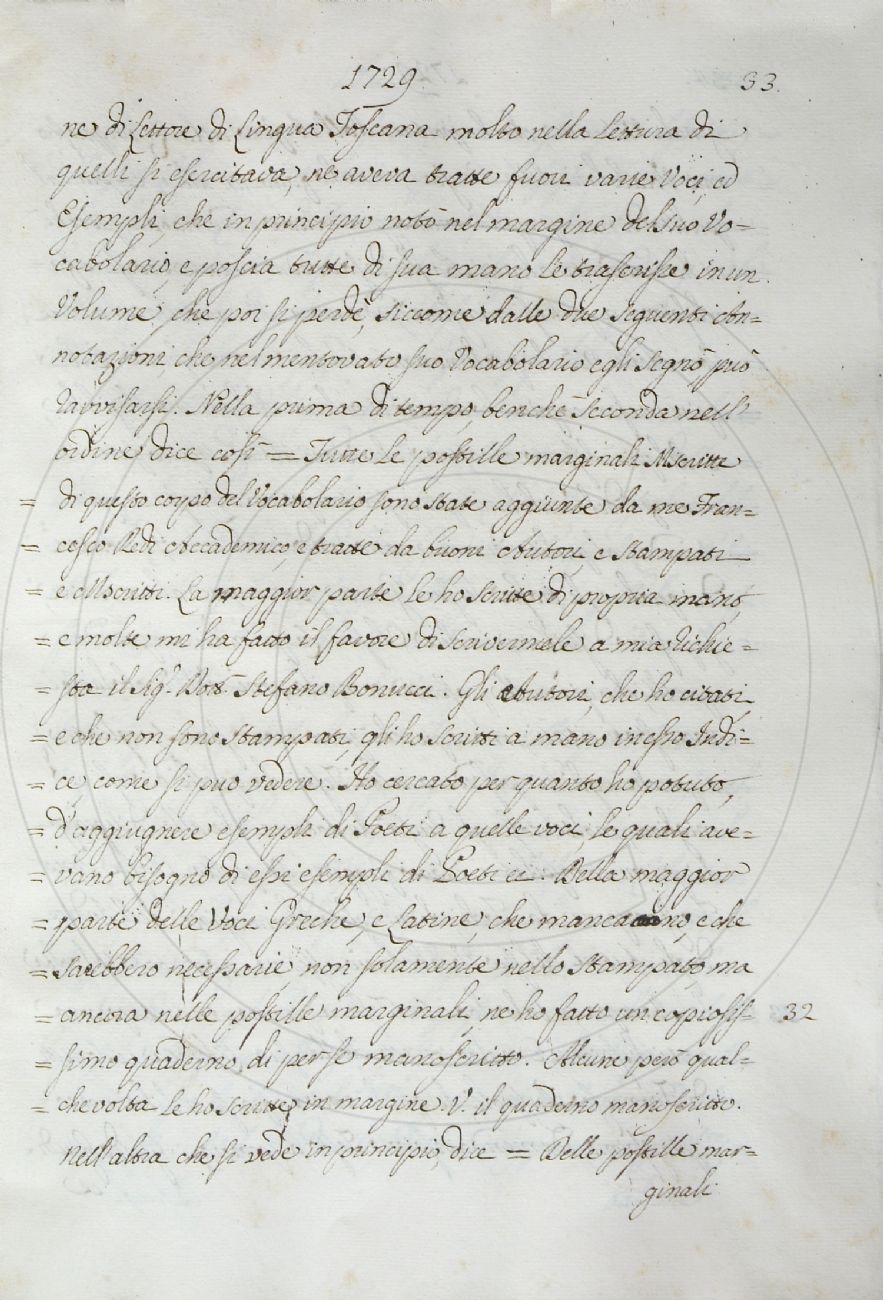 1729.
33.
ne di Lettore di Lingua Toscana molto nella Lettura di
quelli si esercitava, ne aveva tratte fuori varie Voci, ed
Esempli, che in principio notò nel margine del suo Vo=
cabolario, e poscia tutte di sua mano le trascrisse in un
Volume, che poi si perdè, siccome dalle due seguenti An=
notazioni che nel mentovato suo Vocabolario egli segnò può
ravvisarsi. Nella prima di tempo, benchè seconda nell'
ordine dice così = Tutte le postille marginali Mscritte
= di questo corpo del Vocabolario sono state aggiunte da me Fran=
= cesco Redi Accademico, e tratte da buoni Autori, e stampati
= e Mscritti. La maggior parte le ho scritte di propria mano,
= e molte mi ha fatto il favore di scrivermele a mia richie=
= sta il Sig.r Dott. Stefano Bonucci. Gli Autori, che ho citati,
= e che non sono stampati, gli ho scritti a mano in esso Indi=
= ce, come si puo vedere. Ho cercato per quanto ho potuto,
= d'aggiugnere esempli di Poeti a quelle voci, le quali ave=
= vano bisogno di essi esempli di Poeti ec. Della maggior
= parte delle Voci Greche, e Latine, che mancano, e che
= sarebbero necessarie, non solamente nello stampato, ma
= ancora nelle postille marginali, ne ho fatto un copiosis= 32
= simo quaderno di per se manoscritto. Alcune però qual=
= che volta le ho scritte in margine. V. il quaderno manoscritto.
Nell'altra che si vede in principio, dice = Delle postille mar=
ginali